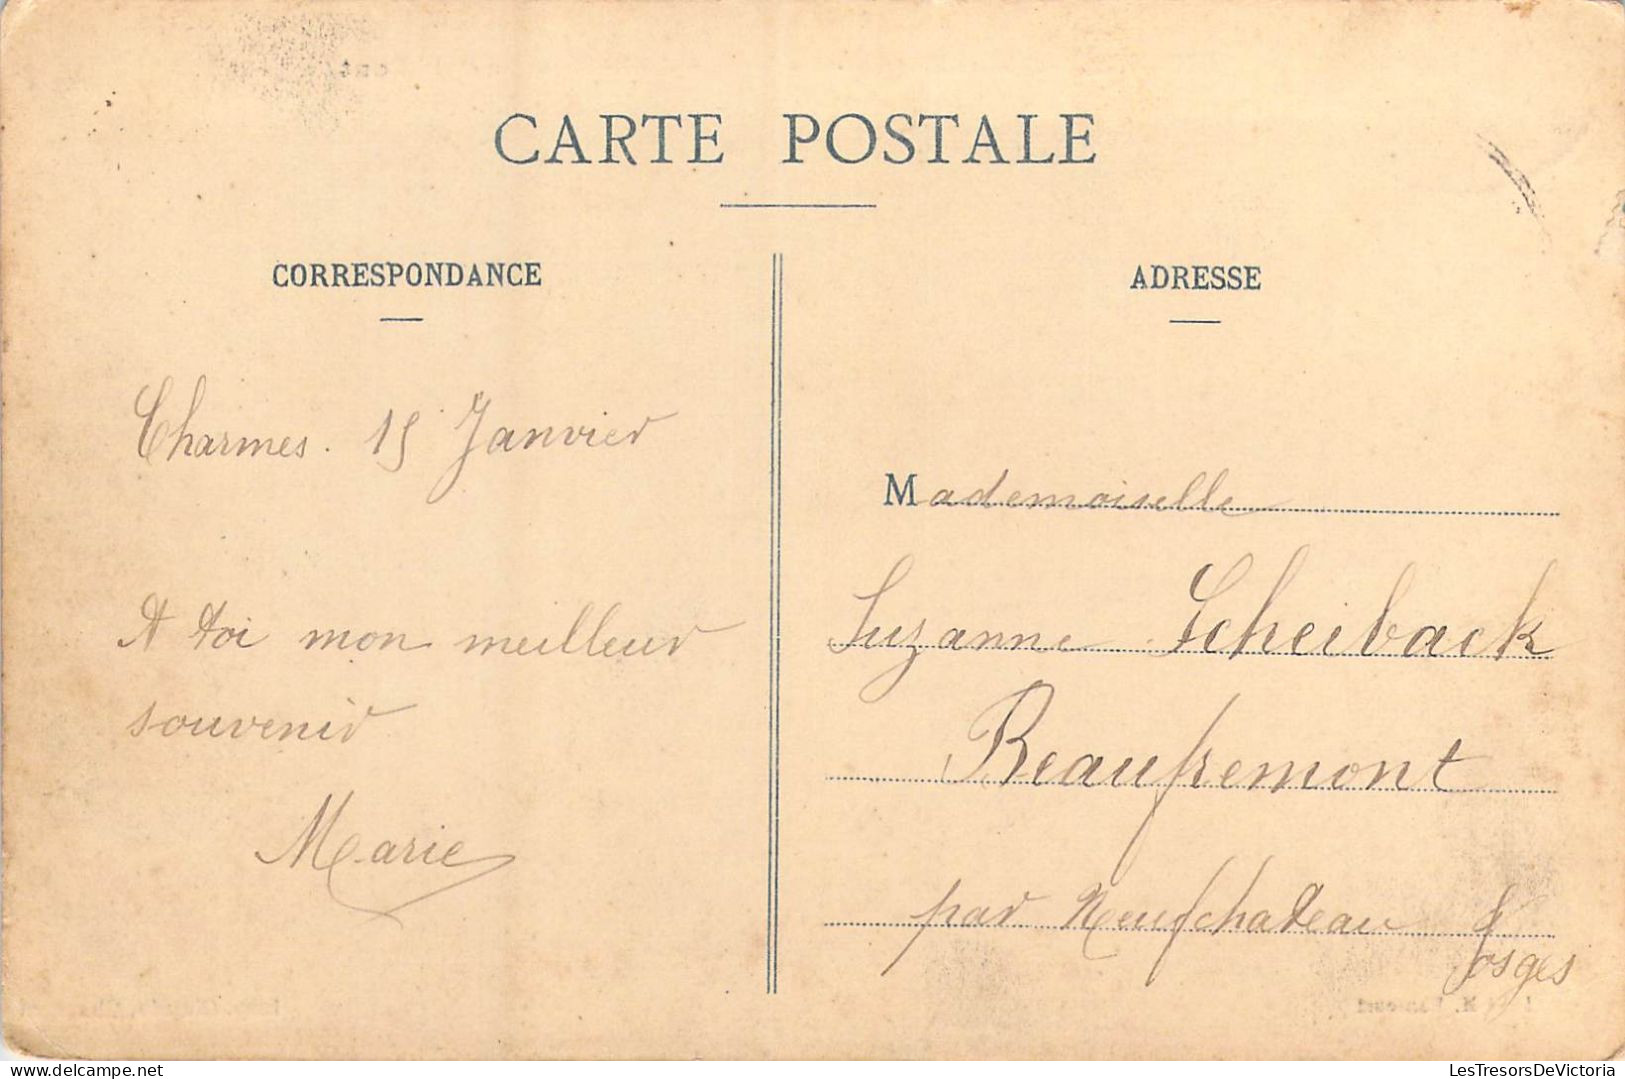 CARTE POSTALE
CORRESPONDANCE
Charmes. 15 Janvier
A toi mon meilleur
souvenir
Marie
ADRESSE
Mademoiselle
Suzanne Scheiback
Beaufremont
par Neufchateau
Vosges
LesTresorsDeVictoria